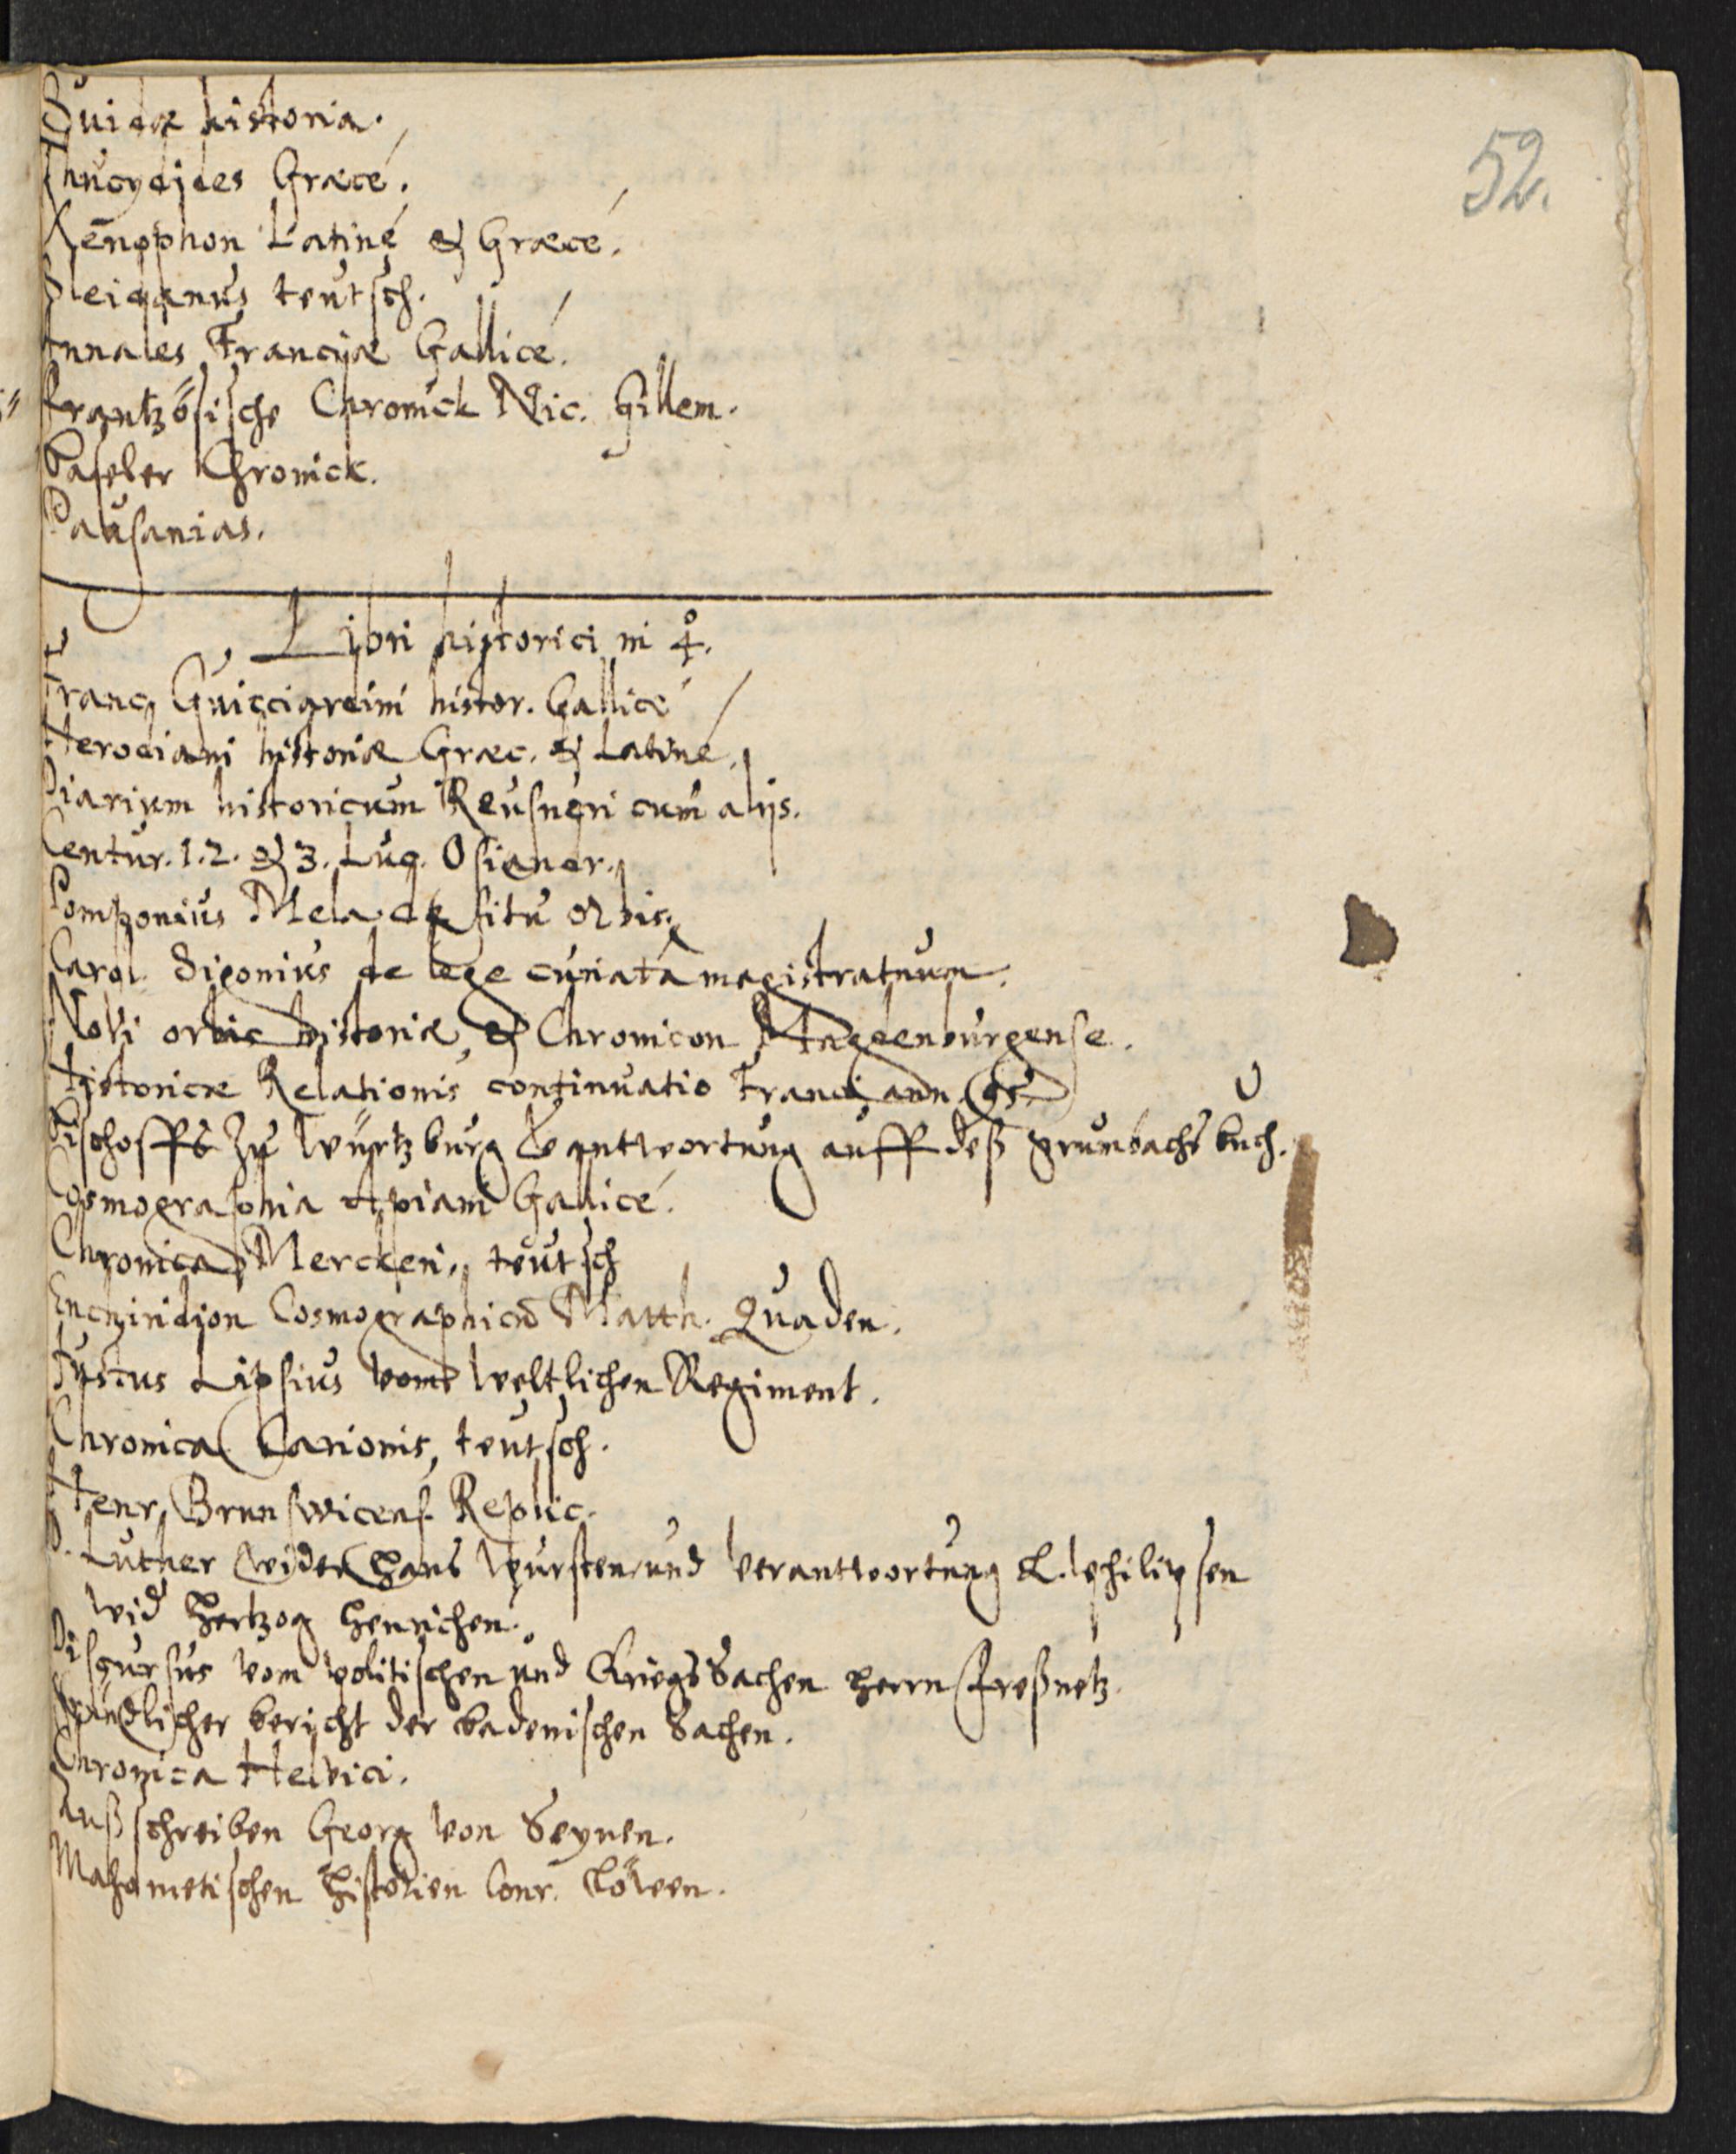 52.
Suidæ historia.
Thucydides Græcé.
Xenophon Latiné & Græcé.
Sleidanus teutsch.
Annales Franciæ Gallicé.
Frantzösische Chronick Nic. Gillem.
Baseler Chronick.
Pausanias.
Libri historici in 4º.
Franc. Guicciardini histor. Gallicé
Herodiani historiæ Græc. & Latiné.
Diarium historicum Reusneri cum alijs.
Centur. 1. 2. & 3. Luc. Osiandr.
Pomponius Mela de situ orbis.
Carol. Sigonius de lege curiata magistratuum.
Novi orbis historiæ, & Chronicon Magdenburgense.
Historicæ Relationis continuatio Franci ann.
Bischoffs zu Würtzburg Vantwortung auff deß Grumbachs buch.
Cosmographia Apiani Gallicé.
Chronica Merckeri, teutsch
Enchiridion Cosmographicū Matth. Quaden.
Justus Lipsius vom Weltlichen Regiment.
Chronica Carionis, teutsch.
Henr. Brunswicens. Replic.
D. Luther wider Hans Wursten und verantwortung L. Philipsen
wid Hertzog Henrichen.
Discursus vom politischen und KriegsSachen herrn
Gründlicher bericht der badenischen Sachen.
Chronica Helvici.
Außschreiben Georg von Seynen.
Mahometischen Historien Conr. Löwen.